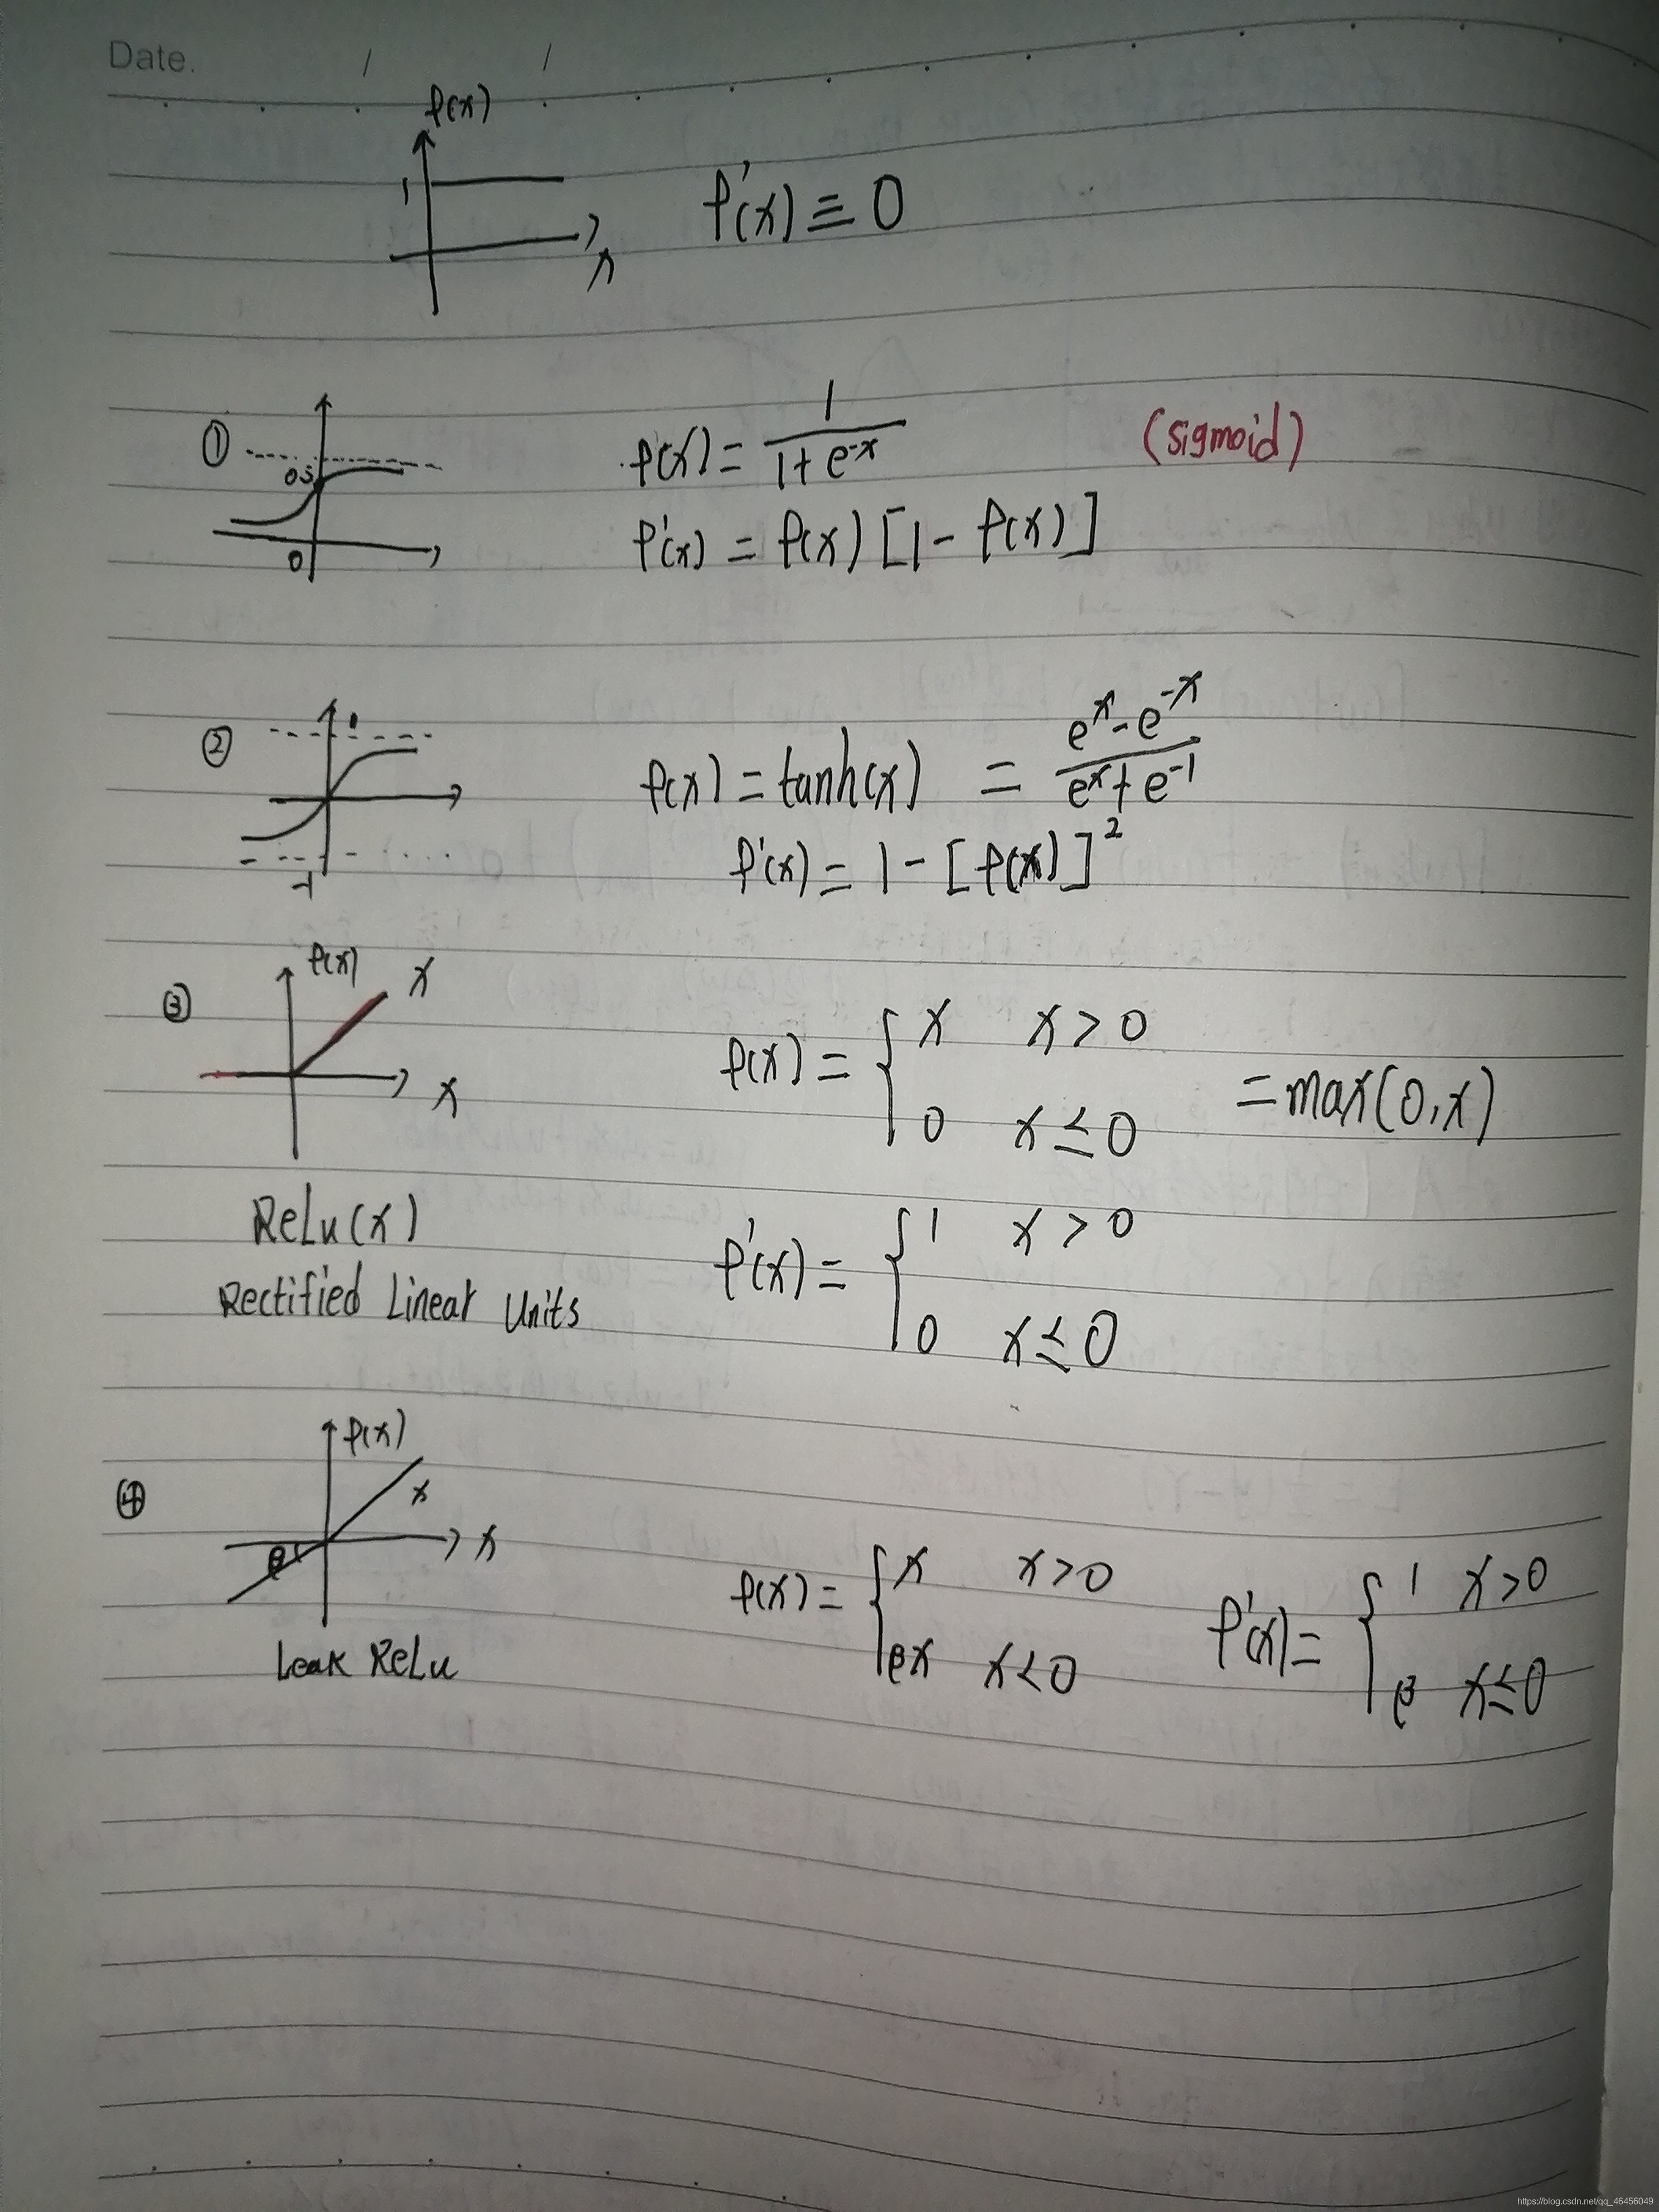 Date. / /
f(x)
1
x
f'(x) ≡ 0
① 0.5 0
f(x) = 1/(1+e^-x) (sigmoid)
f'(x) = f(x) [1 - f(x)]
② 1 -1
f(x) = tanh(x) = (e^x - e^-x)/(e^x + e^-1)
f'(x) = 1 - [f(x)]^2
③ f(x) x x
f(x) = { x x > 0
0 x ≤ 0 = max(0,x)
ReLu(x)
Rectified Linear Units
f'(x) = { 1 x > 0
0 x ≤ 0
④ f(x) x x β
Leak ReLu
f(x) = { x x>0
βx x<0
f'(x) = { 1 x>0
β x≤0
https://blog.csdn.net/qq_46456049